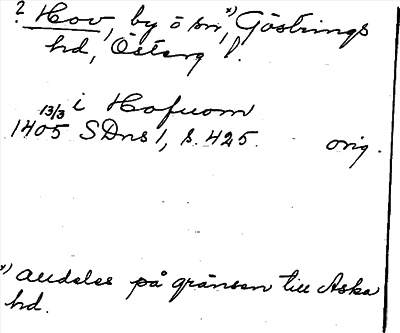 ? Hov, by ö sn, x) Göstrings
hd, Österg l.
i Hofuom
1405 13/3 SDns 1, s. 425. orig.
x) alldeles på gränsen till Aska
hd.